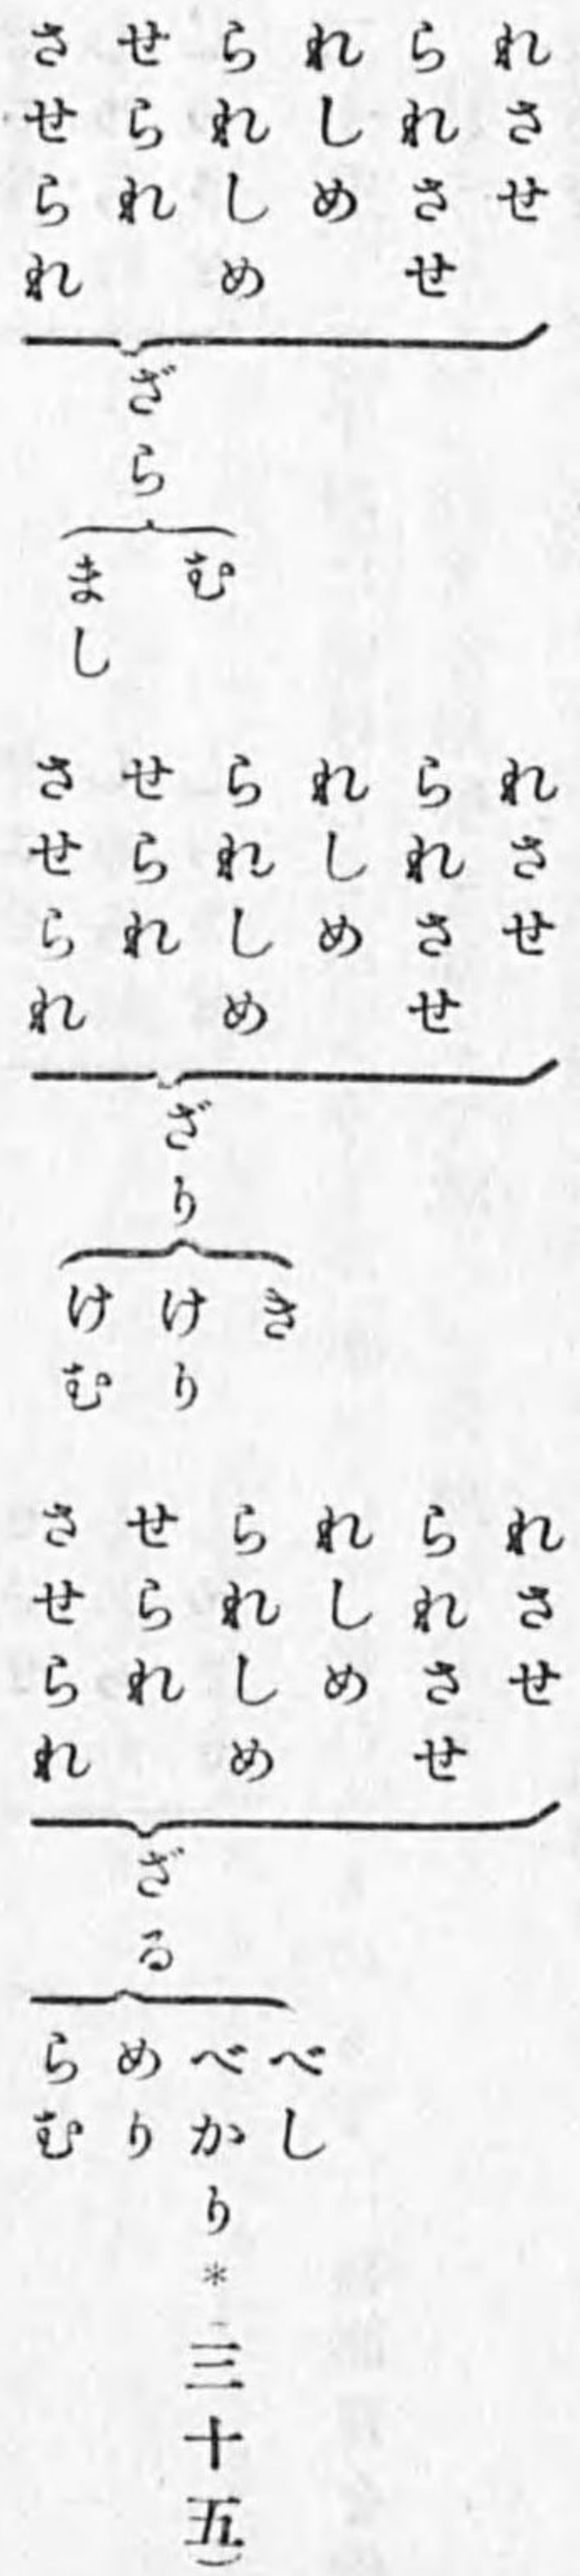 れさせ
られさせ
れしめ
られしめ
せられ
させられ
ざら
む
まし
れさせ
られさせ
れしめ
られしめ
せられ
させられ
ざり
き
けり
けむ
れさせ
られさせ
れしめ
られしめ
せられ
させられ
ざる
べし
べかり*(三十五)
めり
らむ